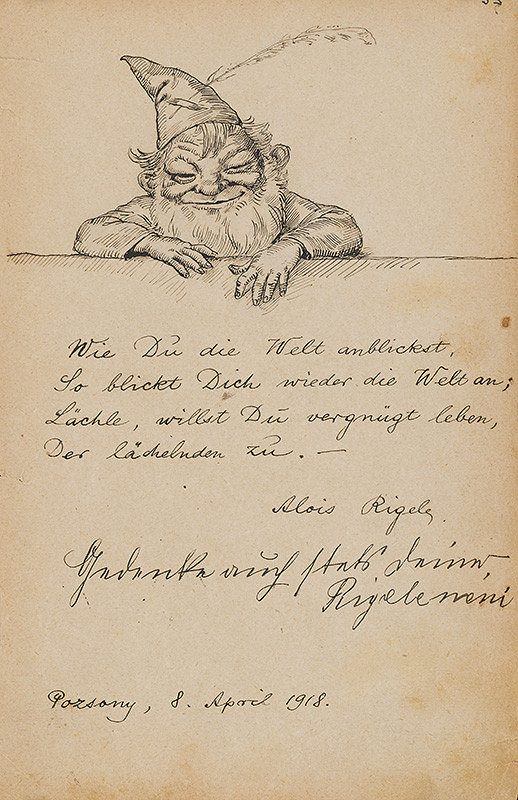 Wie Du die Welt anblickst,
So blickt Dich wieder die Welt an;
Lächle, willst Du vergnügt leben,
Der lächelnden zu. —
Alois Rigele
Gedenke auch stets Deiner
Rigele neni
Pozsony, 8. April 1918.